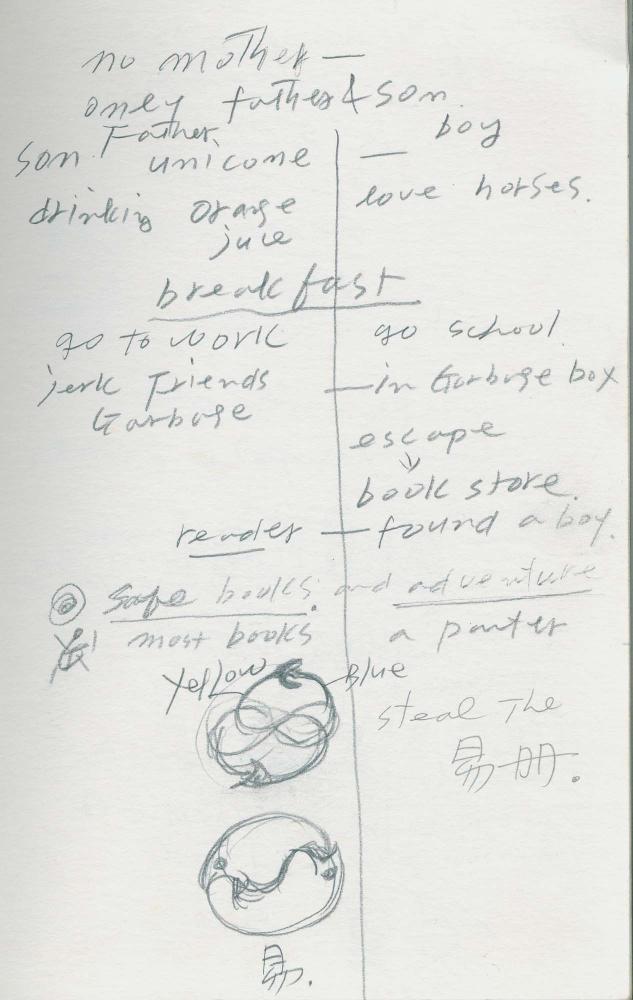 no mother —
only father & son.
Father.
boy
son unicone —
drinking orange love horses.
juce
breakfast
go to work go school
jerk Friends — in Garbage box
Garbage
escape
book store.
reader — found a boy.
safe books. and adventure
most books a panter
Yellow Blue
steal The
易冊.
易.